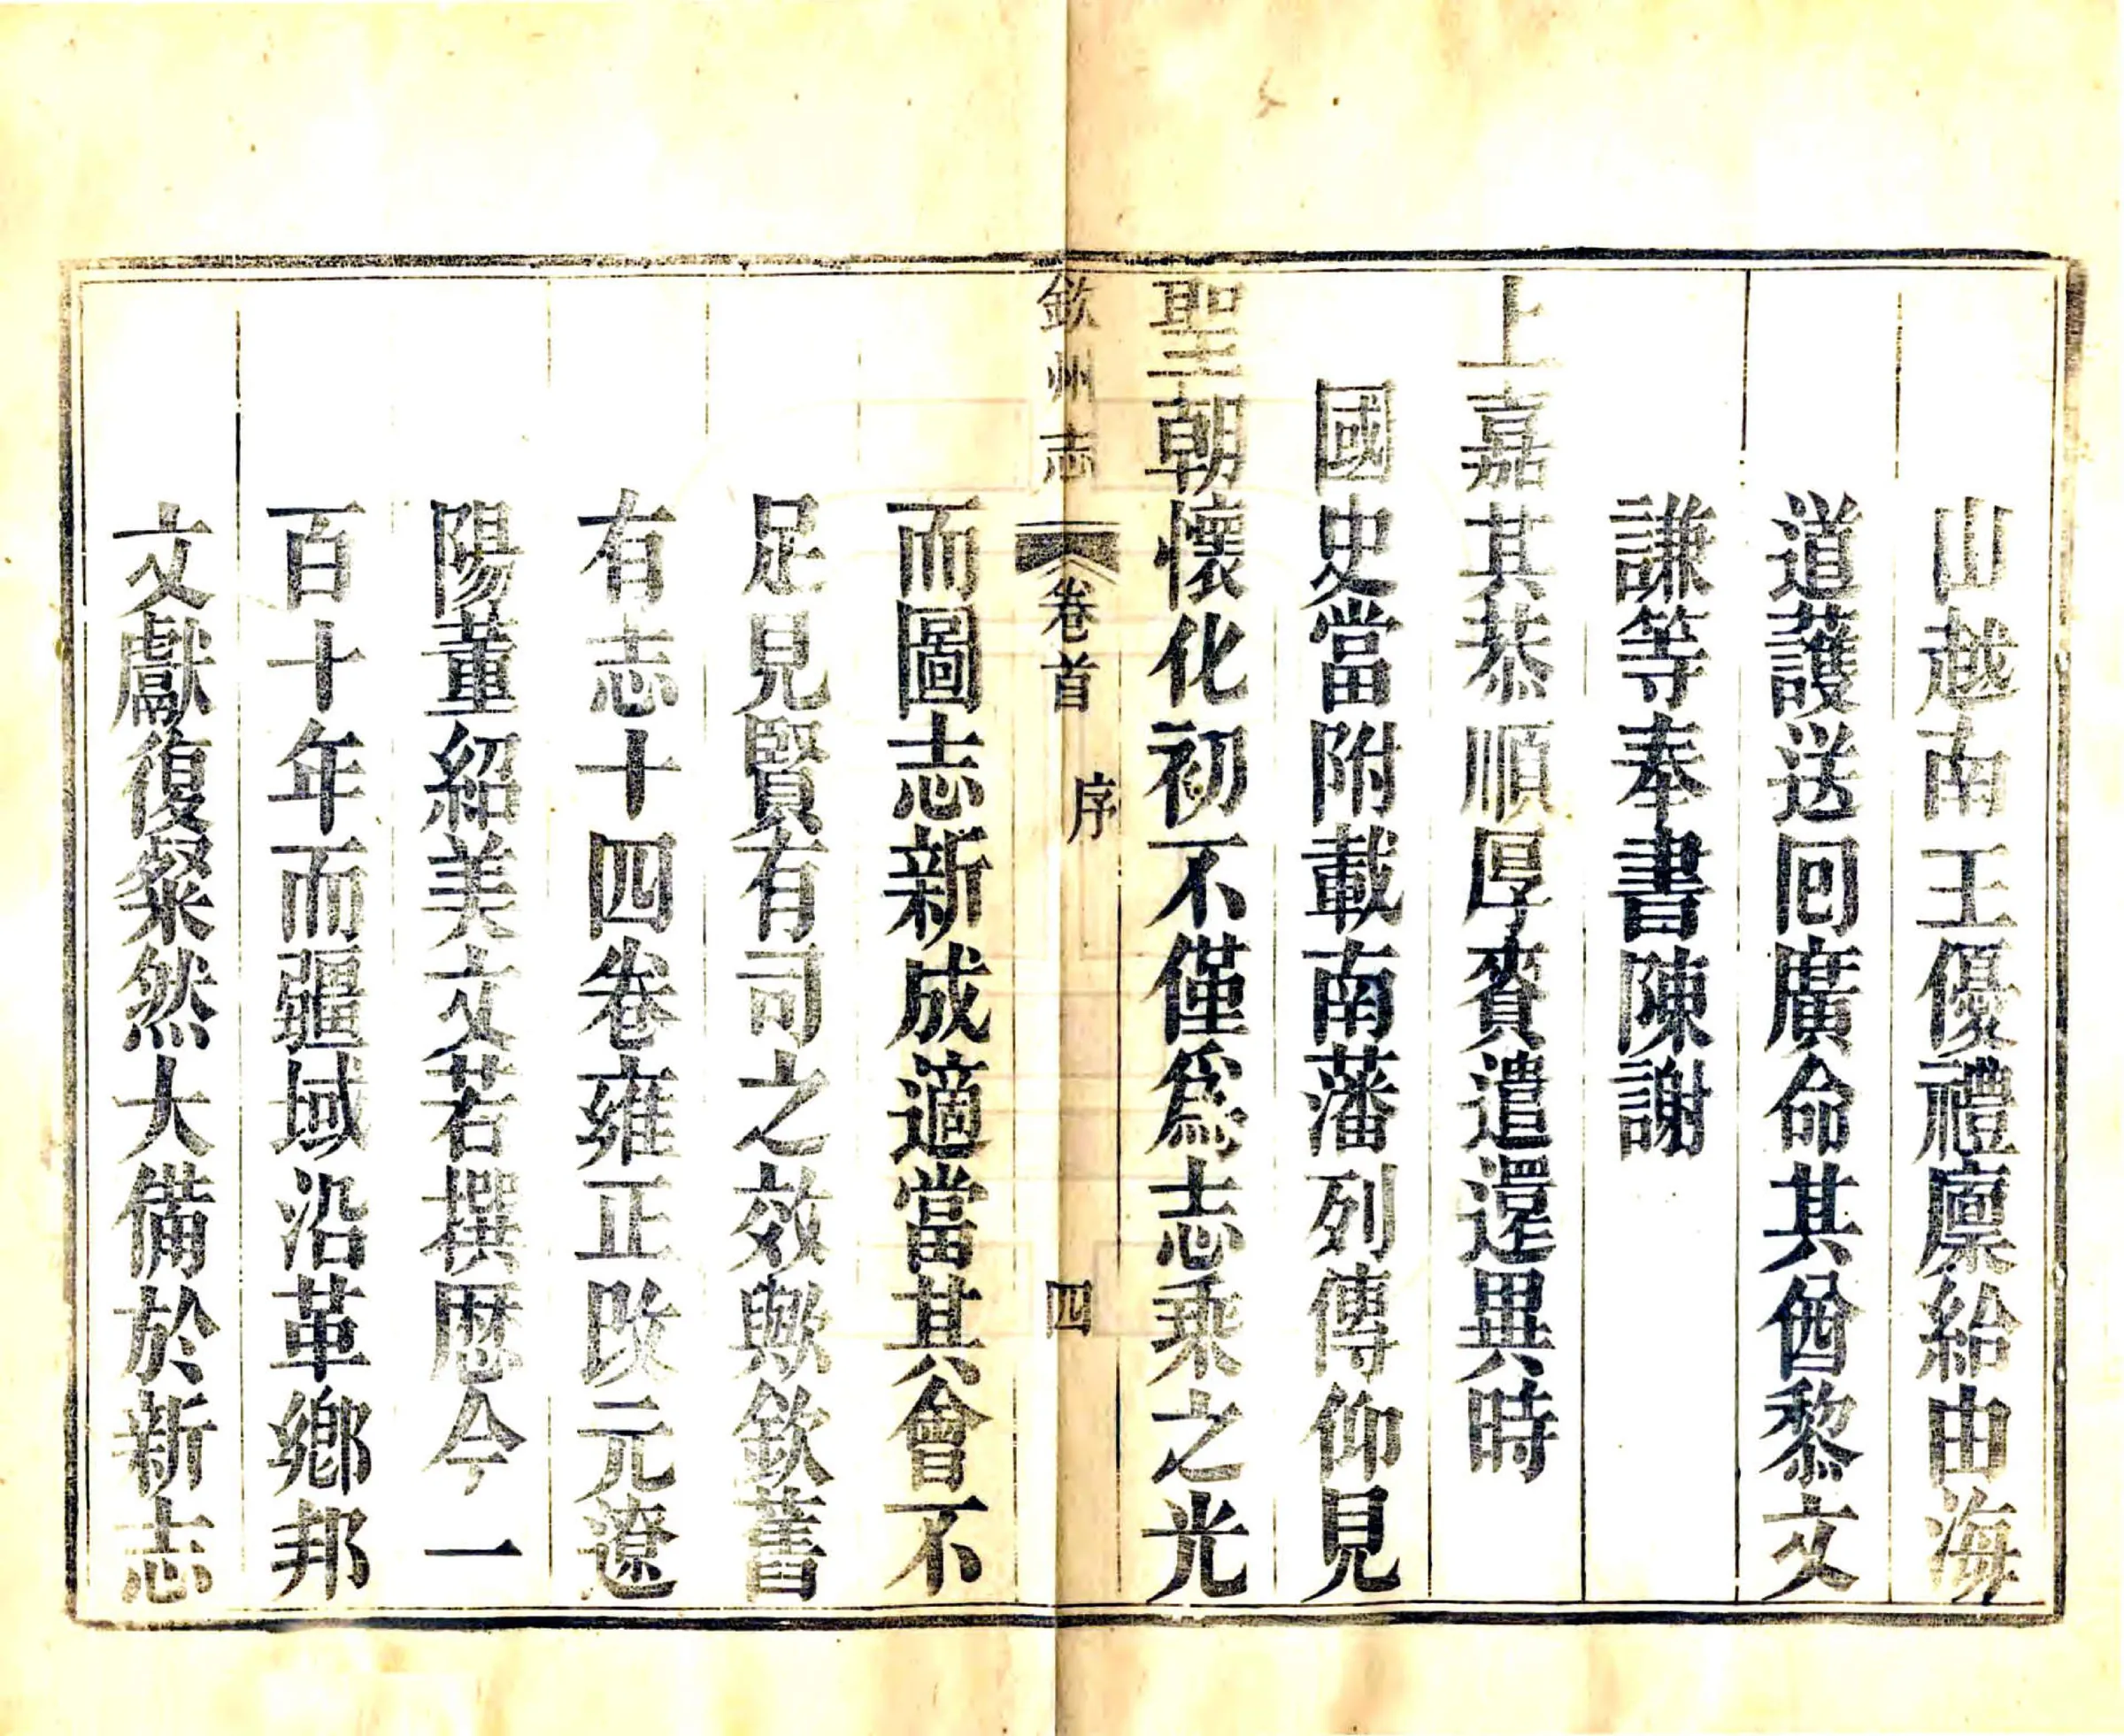 山越南王優禮廩給由海
道護送回廣命其酋黎文
謙等奉書陳謝
上嘉其恭順厚賚遣還異時
國史當附載南藩列傳仰見
聖朝懷化初不僅爲志乘之光
欽州志 卷首 序 四
而圖志新成適當其會不
足見賢有司之效歟欽舊
有志十四卷雍正改元遼
陽董紹美文若撰歷今一
百十年而疆域沿革鄉邦
文獻復粲然大備於新志